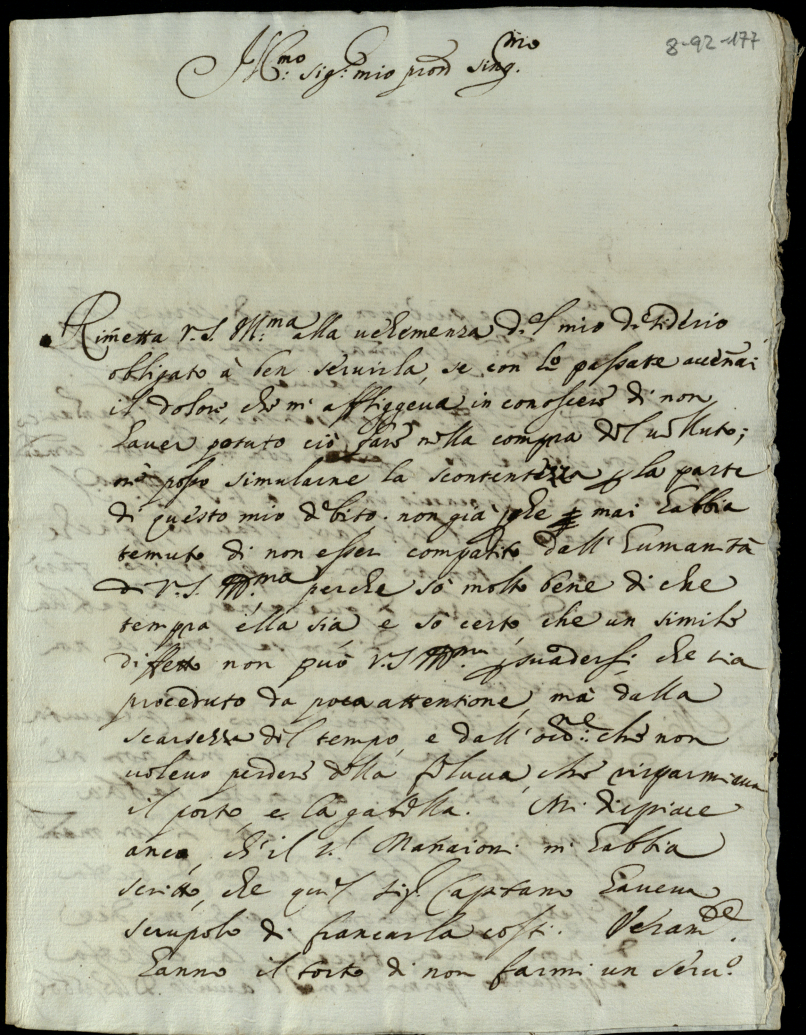 8-92-177
Ill:mo sig:r mio pron sing.mo
Rimetta V.S. Ill:ma alla vehemenza del mio desiderio
obligato à ben servirla, se con le passate accennai
il dolore, che m'affliggeva in conoscere di non
haver potuto ciò fare nella compra del velluto;
nè posso simularne la scontentezza p la parte
di questo mio debito. non già che mai habbia
temuto di non esser compatito dall'humanità
di V.S. Ill.ma perche sò molto bene di che
tempra ella sia e sò certo che un simile
difetto non può V.S. Ill.ma psuadersi che sia
proceduto da poca attentione, mà dalla
scarsezza del tempo, e dall' che non
volevo perdere della feluca, che risparmiava
il porto, e la gabella. Mi dispiace
anco, ch'il S.r Mannaioni mi habbia
scritto, che quel Sig.r Capitano haveva
scrupolo di francarla costì. Veram.te
hanno il torto di non farmi un serv.o